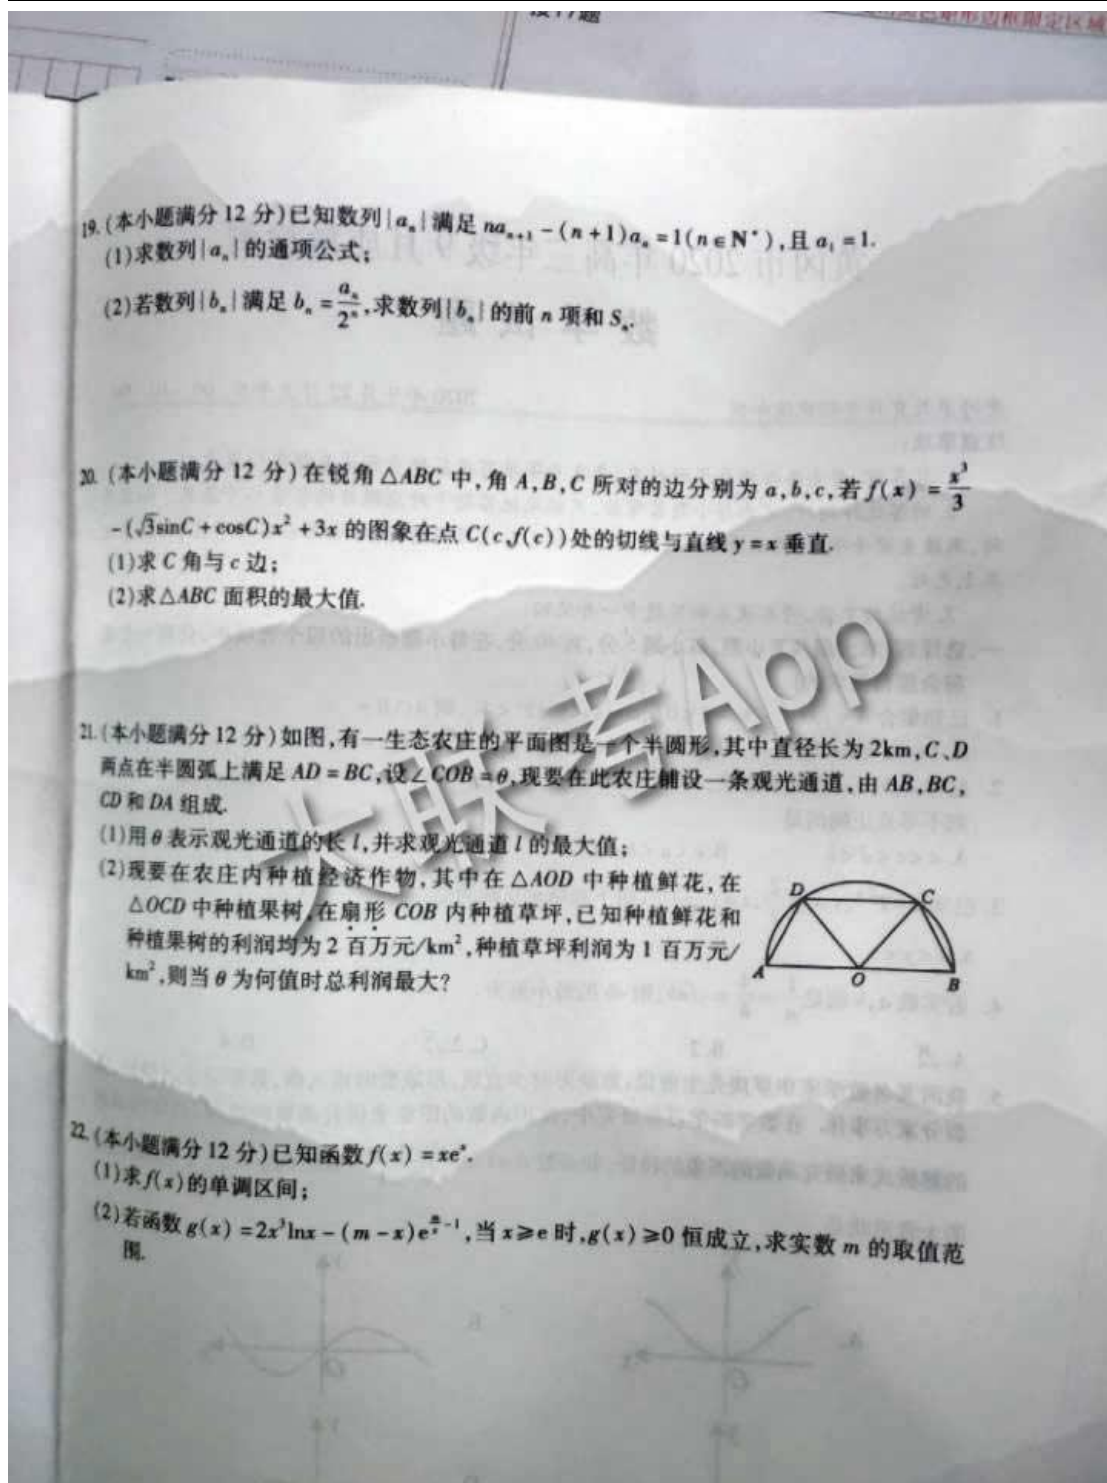 19.(本小题满分12分)已知数列{aₙ}满足naₙ₊₁-(n+1)aₙ=1(n∈N*),且a₁=1.
(1)求数列{aₙ}的通项公式;
(2)若数列{bₙ}满足bₙ=aₙ/2ⁿ,求数列{bₙ}的前n项和Sₙ.
20.(本小题满分12分)在锐角△ABC中,角A,B,C所对的边分别为a,b,c,若f(x)=x³/3
-(√3sinC+cosC)x²+3x的图象在点C(c,f(c))处的切线与直线y=x垂直.
(1)求C角与c边;
(2)求△ABC面积的最大值.
21.(本小题满分12分)如图,有一生态农庄的平面图是一个半圆形,其中直径长为2km,C、D
两点在半圆弧上满足AD=BC,设∠COB=θ,现要在此农庄铺设一条观光通道,由AB,BC,
CD和DA组成.
(1)用θ表示观光通道的长l,并求观光通道l的最大值;
(2)现要在农庄内种植经济作物,其中在△AOD中种植鲜花,在
△OCD中种植果树,在扇形COB内种植草坪,已知种植鲜花和
种植果树的利润均为2百万元/km²,种植草坪利润为1百万元/
km²,则当θ为何值时总利润最大?
D C
A O B
22.(本小题满分12分)已知函数f(x)=xeˣ.
(1)求f(x)的单调区间;
(2)若函数g(x)=2x³lnx-(m-x)e^(m/x-1),当x≥e时,g(x)≥0恒成立,求实数m的取值范
围.
大联考App